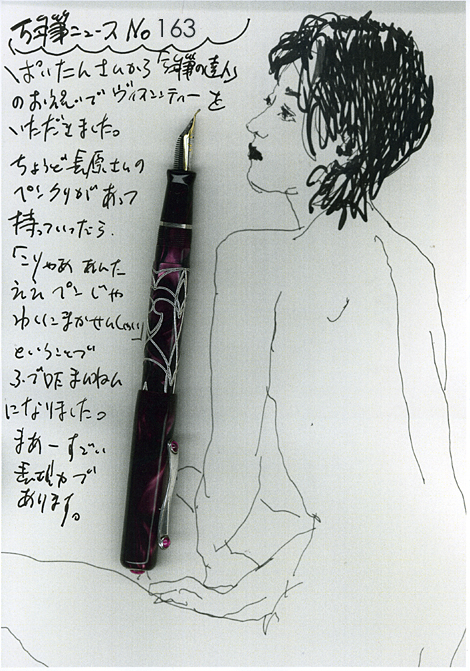 万年筆ニュース No 163
ぱいたんさんから「万年筆の達人」
のおえかきで ヴィスコンティー を
いただきました。
ちょうど長原さんの
ペンクリがあって
持っていったら、
「こりゃあ あんた
ええ ペンじゃ
わしにまかせんしゃい」
ということで
ふでDEまんねん
になりました。
まあー すごい
表現力で
あります。